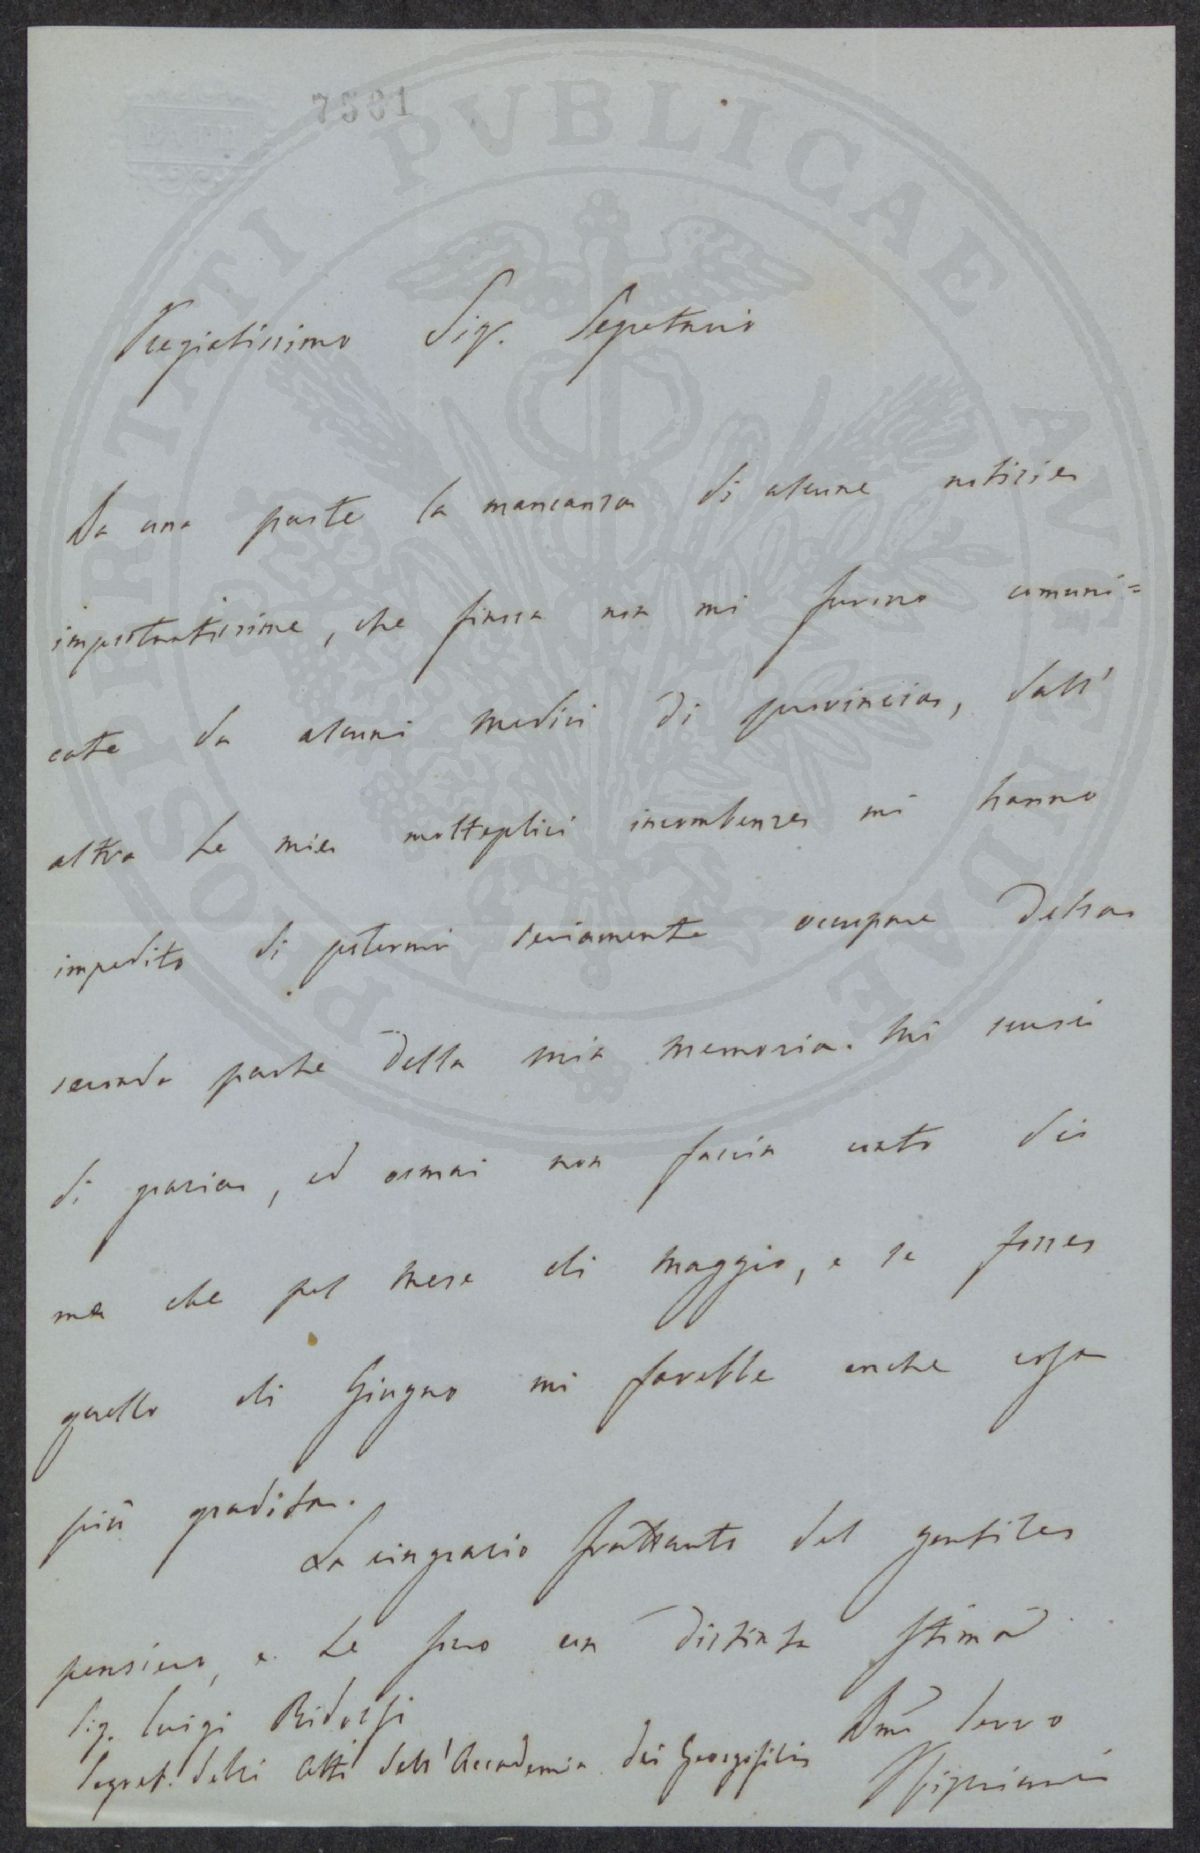 7581
BATH
PROSPERITATI PVBLICAE AVGENDAE
Pregiatissimo Sigr. Segretario
Da una parte la mancanza di alcune notizie
importantissime, che finora non mi furono comuni=
cate da alcuni medici di provincia, dall'
altra le mie molteplici incombenze mi hanno
impedito di potermi seriamente occupare della
seconda parte della mia memoria. Mi scusi
di grazia, ed ormai non faccia conto di
me che pel mese di Maggio, e se fosse
quello di Giugno mi farebbe anche cosa
più gradita.
La ringrazio frattanto del gentile
pensiero, e Le sono con distinta stima
Sig. Luigi Ridolfi
Segret. delli Atti dell'Accademia dei Georgofili
Dmo Servo